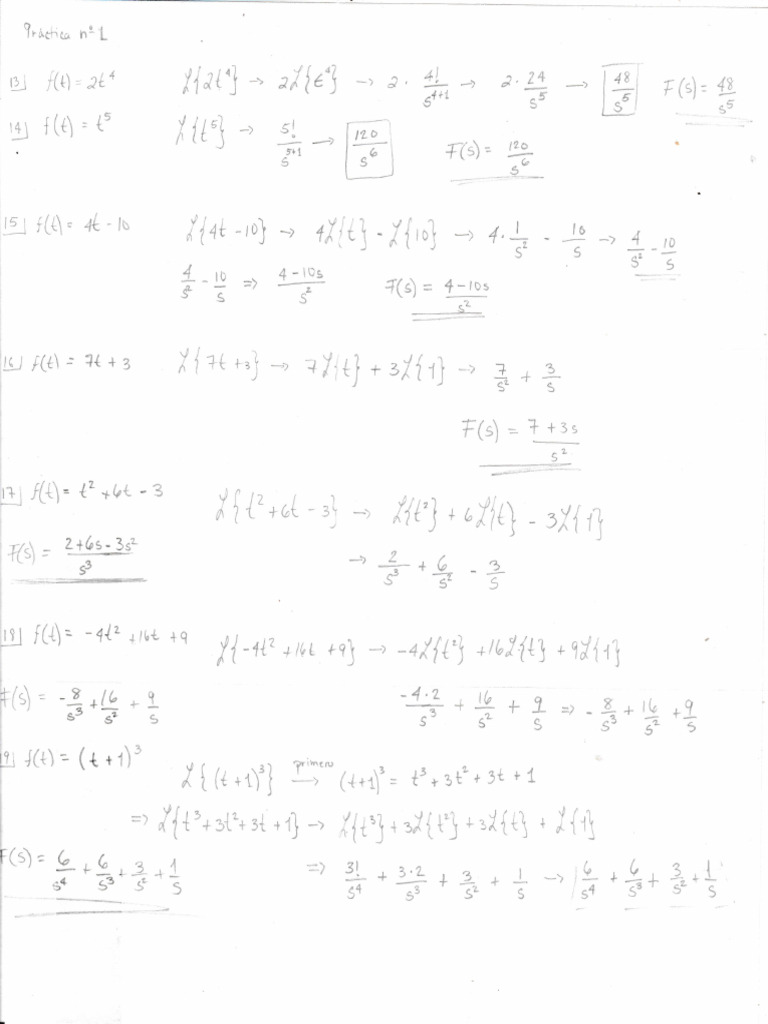 Práctica nº 1
13] f(t) = 2t⁴   ℒ{2t⁴} → 2ℒ{t⁴} → 2 · 4!/s⁴⁺¹ → 2 · 24/s⁵ → 48/s⁵   F(s) = 48/s⁵
14] f(t) = t⁵   ℒ{t⁵} → 5!/s⁵⁺¹ → 120/s⁶   F(s) = 120/s⁶
15] f(t) = 4t - 10   ℒ{4t - 10} → 4ℒ{t} - ℒ{10} → 4 · 1/s² - 10/s → 4/s² - 10/s
4/s² - 10/s ⇒ (4 - 10s)/s²   F(s) = (4 - 10s)/s²
16] f(t) = 7t + 3   ℒ{7t + 3} → 7ℒ{t} + 3ℒ{1} → 7/s² + 3/s
F(s) = (7 + 3s)/s²
17] f(t) = t² + 6t - 3   ℒ{t² + 6t - 3} → ℒ{t²} + 6ℒ{t} - 3ℒ{1}
F(s) = (2 + 6s - 3s²)/s³   → 2/s³ + 6/s² - 3/s
18] f(t) = -4t² + 16t + 9   ℒ{-4t² + 16t + 9} → -4ℒ{t²} + 16ℒ{t} + 9ℒ{1}
F(s) = -8/s³ + 16/s² + 9/s   (-4·2)/s³ + 16/s² + 9/s ⇒ -8/s³ + 16/s² + 9/s
19] f(t) = (t + 1)³   ℒ{(t + 1)³} primero → (t+1)³ = t³ + 3t² + 3t + 1
⇒ ℒ{t³ + 3t² + 3t + 1} → ℒ{t³} + 3ℒ{t²} + 3ℒ{t} + ℒ{1}
F(s) = 6/s⁴ + 6/s³ + 3/s² + 1/s   ⇒ 3!/s⁴ + (3·2)/s³ + 3/s² + 1/s → 6/s⁴ + 6/s³ + 3/s² + 1/s